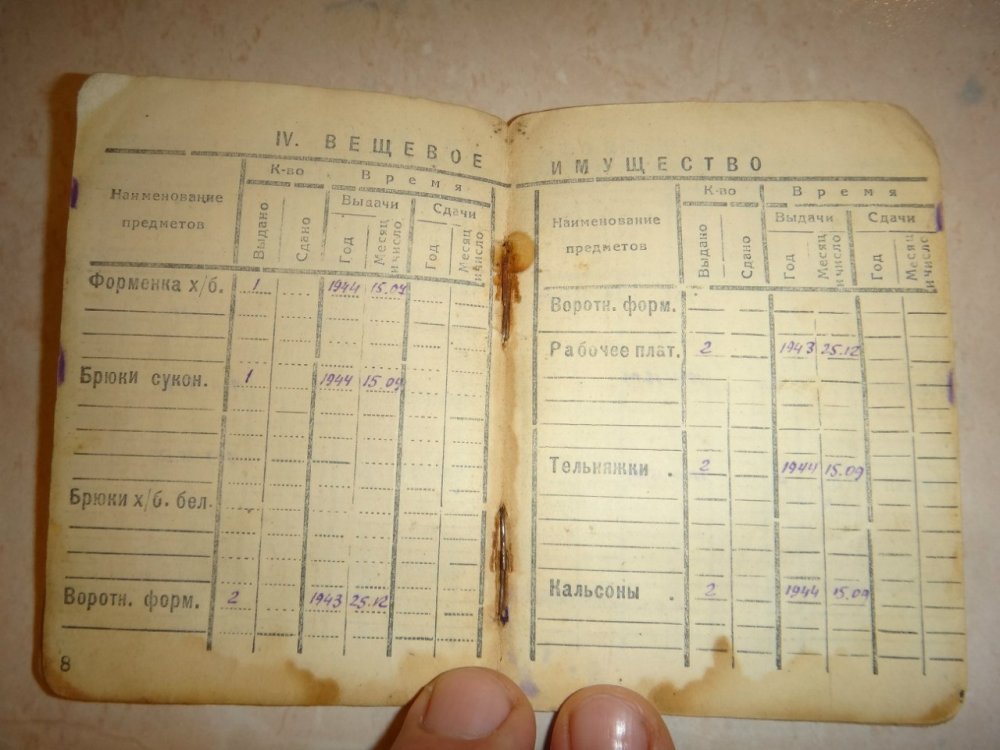 IV. ВЕЩЕВОЕ
Наименование предметов
К-во
Время
Выдано
Сдано
Выдачи
Сдачи
Год
Месяц и число
Год
Месяц и число
Форменка х/б. 1 1944 15.09
Брюки сукон. 1 1944 15.09
Брюки х/б. бел.
Воротн. форм. 2 1943 25.12
8
ИМУЩЕСТВО
Наименование предметов
К-во
Время
Выдано
Сдано
Выдачи
Сдачи
Год
Месяц и число
Год
Месяц и число
Воротн. форм.
Рабочее плат. 2 1943 25.12
Тельняжки . 2 1944 15.09
Кальсоны . 2 1944 15.09